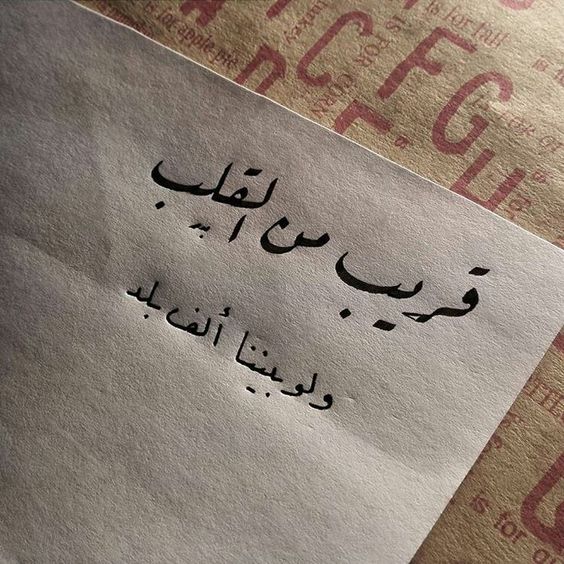 قريب من القلب
ولو بيننا ألف بلد
is for fall
turkey
is for apple pie
C F G
IS FOR CORN
is for